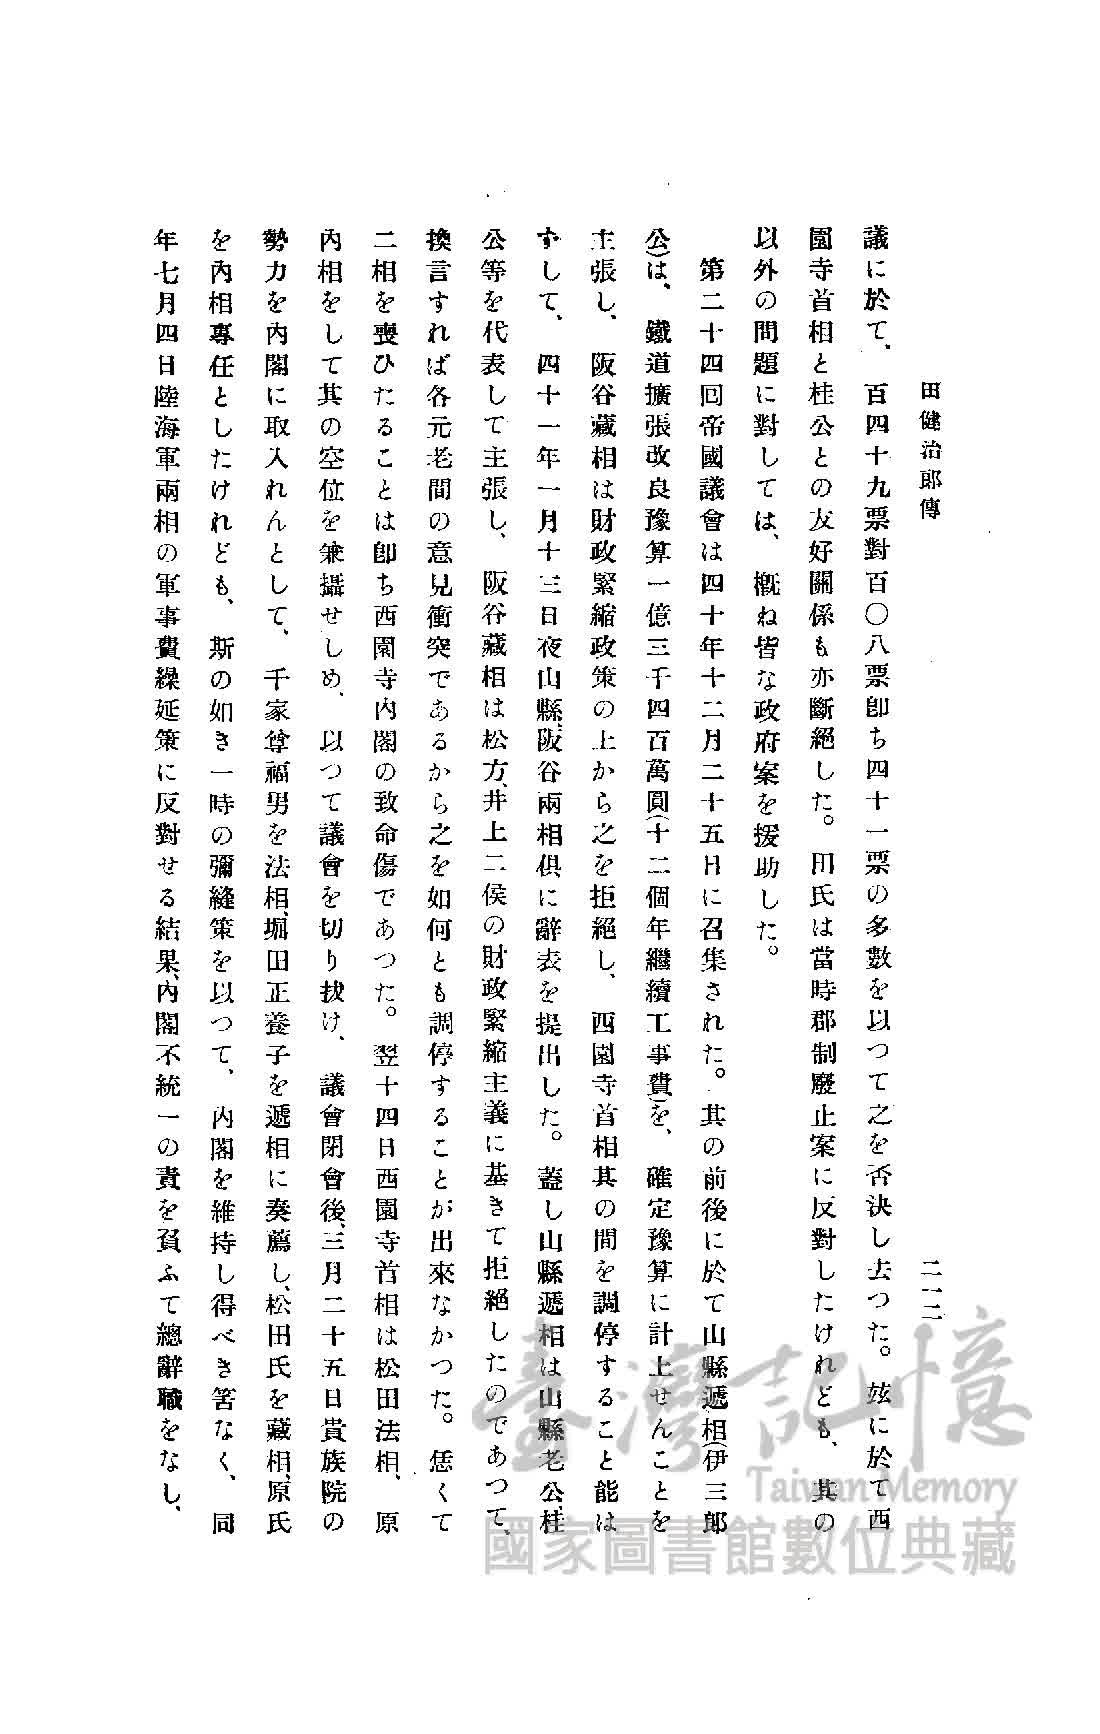 田健治郎傳
二一二
議に於て、百四十九票對百〇八票卽ち四十一票の多數を以つて之を否決し去つた。玆に於て西
園寺首相と桂公との友好關係も亦斷絕した。田氏は當時郡制廢止案に反對したけれども、其の
以外の問題に對しては、槪ね皆な政府案を援助した。
第二十四回帝國議會は四十年十二月二十五日に召集された。其の前後に於て山縣遞相(伊三郎
公)は、鐵道擴張改良豫算一億三千四百萬圓(十二個年繼續工事費)を、確定豫算に計上せんことを
主張し、阪谷藏相は財政緊縮政策の上から之を拒絕し、西園寺首相其の間を調停すること能は
ずして、四十一年一月十三日夜山縣、阪谷兩相俱に辭表を提出した。蓋し山縣遞相は山縣老公、桂
公等を代表して主張し、阪谷藏相は松方、井上二侯の財政緊縮主義に基きて拒絕したのであつて、
換言すれば各元老間の意見衝突であるから之を如何とも調停することが出來なかつた。恁くて
二相を喪ひたることは卽ち西園寺內閣の致命傷であつた。翌十四日西園寺首相は松田法相、原
內相をして其の空位を兼攝せしめ、以つて議會を切り拔け、議會閉會後、三月二十五日貴族院の
勢力を內閣に取入れんとして、千家尊福男を法相、堀田正養子を遞相に奏薦し、松田氏を藏相、原氏
を內相專任としたけれども、斯の如き一時の彌縫策を以つて、內閣を維持し得べき筈なく、同
年七月四日陸海軍兩相の軍事費繰延策に反對せる結果、內閣不統一の責を負ふて總辭職をなし、
臺灣記憶
Taiwan Memory
國家圖書館數位典藏